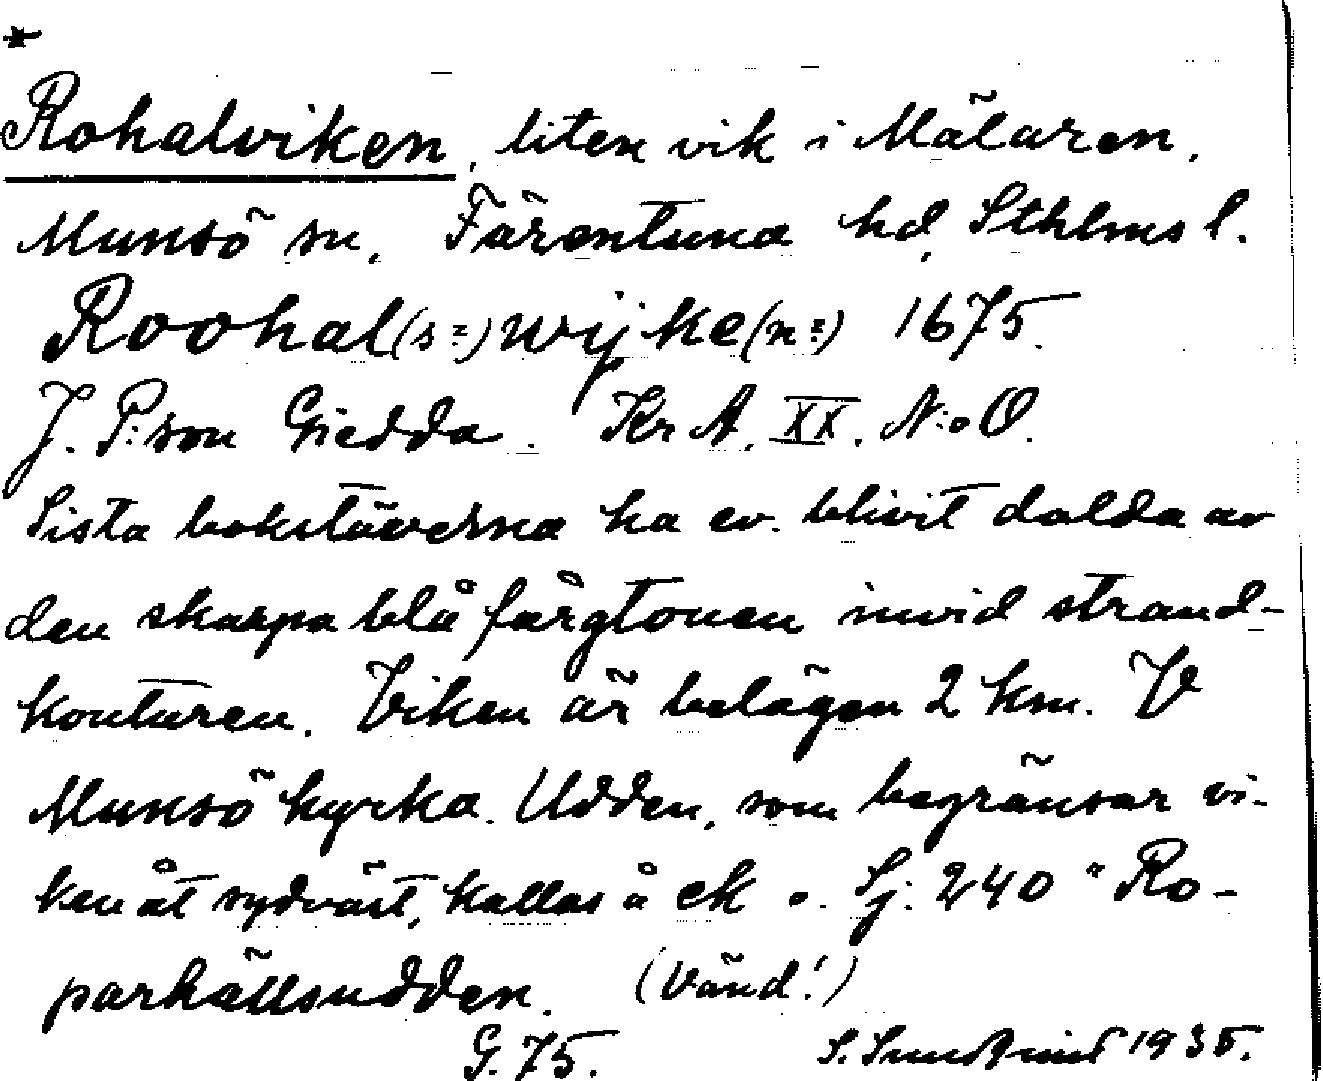 *
Rohalviken, liten vik i Mälaren,
Munsö sn, Färentuna hd, Sthlms l.
Roohal(s=)wijke(n=) 1675.
J. P:son Giedda. Kr A. XX. N:o O.
Sista bokstäverna ha ev. blivit dolda av
den skarpa blå färgtonen invid strand-
konturen. Viken är belägen 2 km. V
Munsö kyrka. Udden, som begränsar vi-
ken åt sydväst, kallas å ek o. Sj. 240 "Ro-
parhällsudden. (Vänd!)
G. 75. S. 1935.